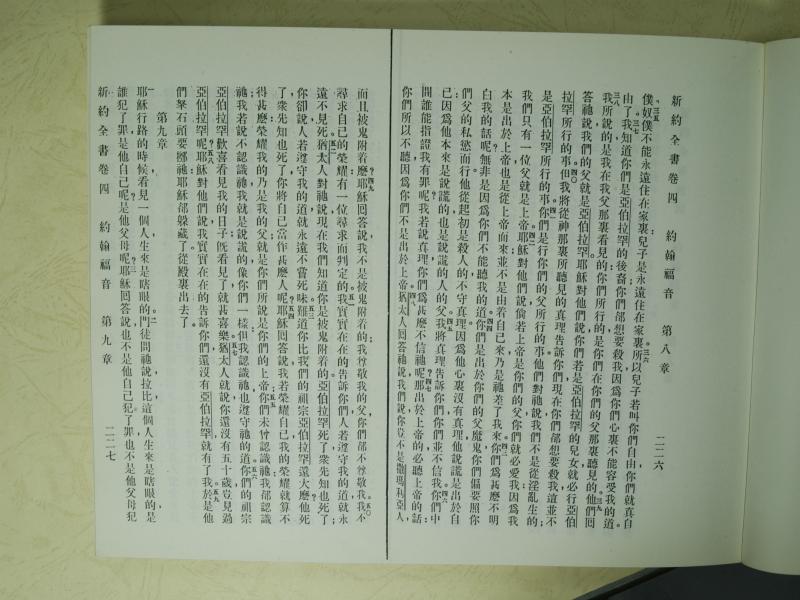 新約全書卷四　約翰福音　第八章　二二六
僕奴僕不能永遠住在家裏兒子是永遠住在家裏所以兒子若叫你們自由你們就真自
由了我知道你們是亞伯拉罕的後裔你們却想要殺我因爲你們心裏不能容受我的道。
我所說的是我在我父那裏看見的你們所行的是你們在你們的父那裏聽見的他們囘
答祂說我們的父就是亞伯拉罕。耶穌對他們說你們若是亞伯拉罕的兒女就必行亞伯
拉罕所行的事但我將從神那裏所聽見的真理告訴你們現在你們却想要殺我這並不
是亞伯拉罕所行的事你們是行你們的父所行的事他們對祂說我們不是從淫亂生的；
我們只有一位父就是上帝耶穌對他們說倘若上帝是你們的父你們就必愛我因爲我
本是出於上帝也是從上帝而來並不是由着自己來乃是祂差了我來你們爲甚麽不明
白我的話呢無非是因爲你們不能聽我的道你們是出於你們的父魔鬼你們偏要照你
們父的私慾而行他從起初是殺人的不守真理因爲他心裏沒有真理他說謊是出於自
已因爲他本來是說謊的也是說謊的人的父我將真理告訴你們你們並不信我你們中
間誰能指證我有罪呢我若說真理你們爲甚麽不信祂呢那出於上帝的必聽上帝的話
你們所以不聽因爲你們不是出於上帝猶太人囘答祂說我們說你豈不是撒瑪利亞人，
而且被鬼附着麽耶穌囘答說我不是被鬼附着的；我尊敬我的父你們却不尊敬我我不
尋求自己的榮耀有一位尋求而判定的我實實在在的告訴你們人若遵守我的道就永
遠不見死猶太人對祂說現在我們知道你是被鬼附着的亞伯拉罕死了衆先知也死了；
你却說人若遵守我的道就永遠不嘗死味難道你比我們的祖宗亞伯拉罕還大麽他死
了衆先知也死了你將自己當作甚麽人呢耶穌囘答說我若榮耀自己我的榮耀就算不
得甚麽榮耀我的乃是我的父就是你們所說是你們的上帝你們未曾認識祂我却認識
祂我若說不認識祂我就是說謊的像你們一樣但我認識祂也遵守祂的道你們的祖宗
亞伯拉罕歡喜看見我的日子；旣看見了就甚喜樂猶太人就說你還沒有五十歲豈見過
亞伯拉罕呢耶穌對他們說我實實在在的告訴你們還沒有亞伯拉罕就有了我於是他
們拏石頭要擲祂耶穌却躱藏了從殿裏出去了。
第九章
耶穌行路的時候看見一個人生來是瞎眼的門徒問祂說拉比這個人生來是瞎眼的是
誰犯了罪是他自己呢是他父母呢耶穌囘答說也不是他自己犯了罪也不是他父母犯
新約全書卷四　約翰福音　第九章　二二七